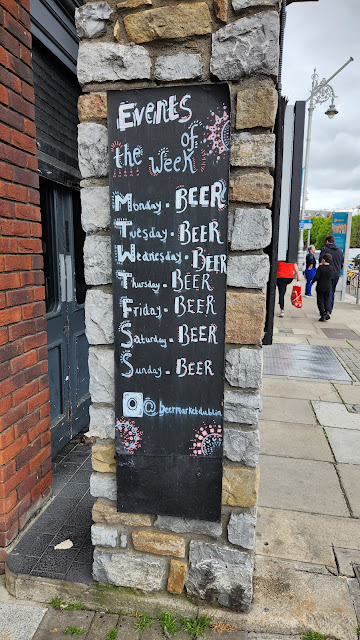 Events
of
the week
Monday - BEER
Tuesday - BEER
Wednesday - BEER
Thursday - BEER
Friday - BEER
Saturday - BEER
Sunday - BEER
@beermarketdublin